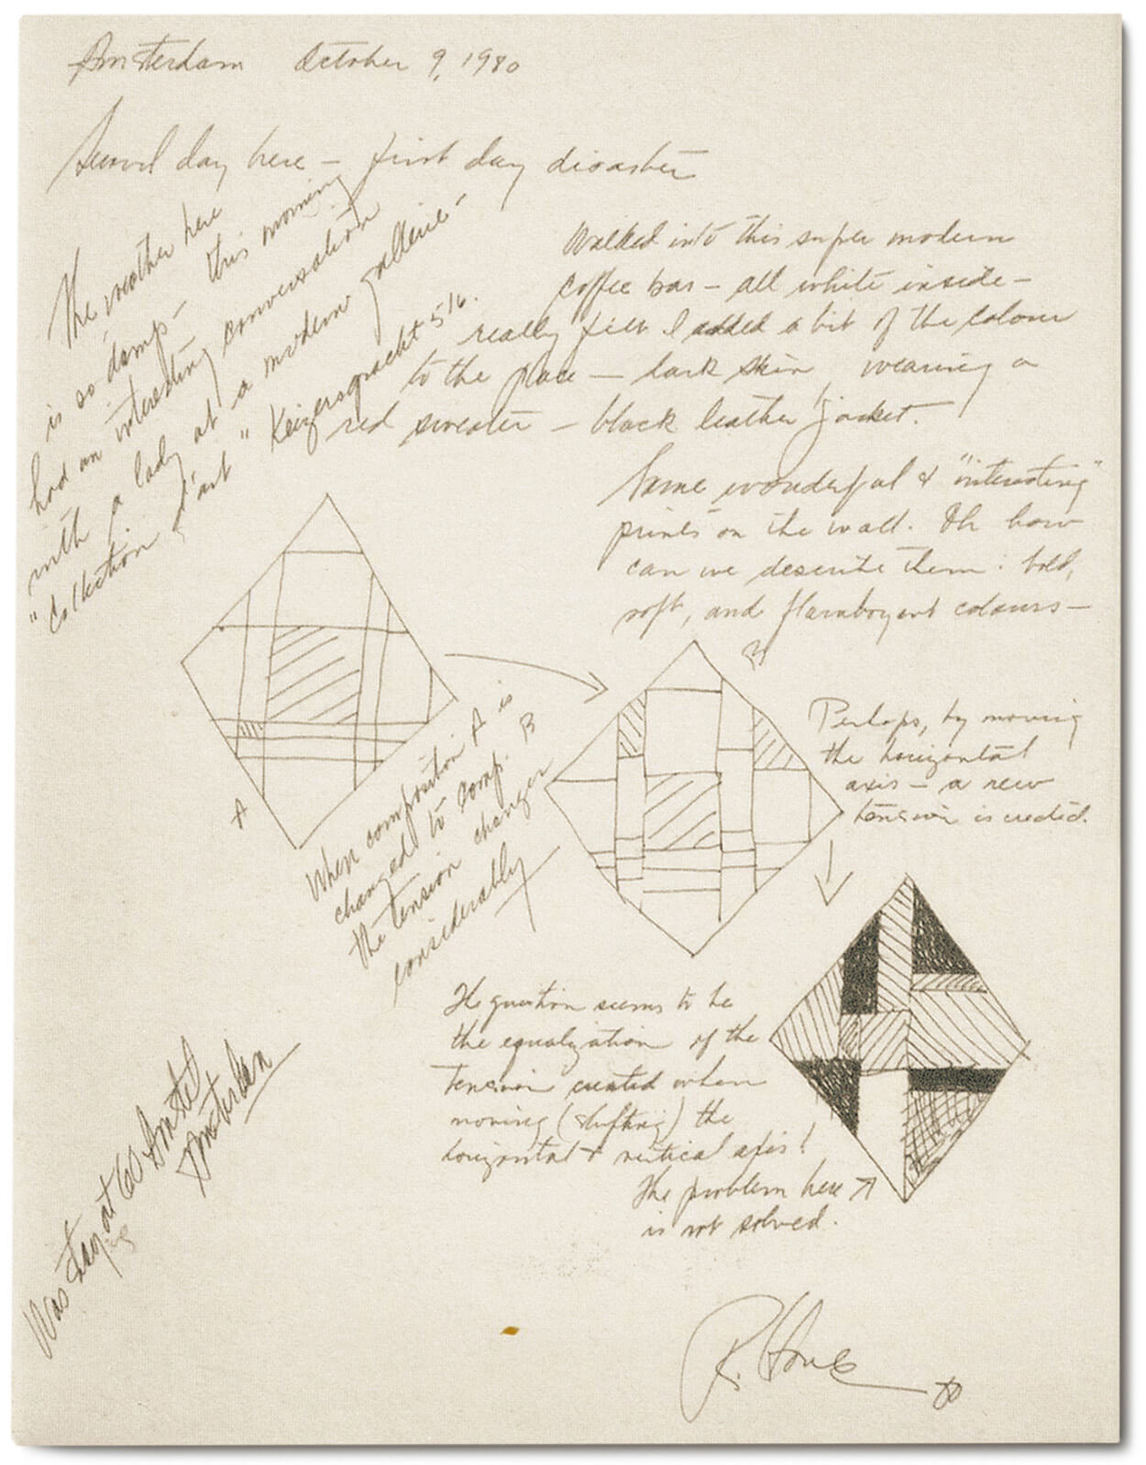 Amsterdam October 9, 1980
Second day here – first day disaster
The weather here
is so damp – this morning
had an interesting conversation
with a lady at a modern gallerie
"Collection d'art" Keizersgracht 516.
Walked into this super modern
coffee bar – all white inside –
really felt I added a bit of the colour
to the place – dark skin, wearing a
red sweater – black leather jacket.
Some wonderful & "interesting"
prints on the wall. Oh how
can we describe them: bold,
soft, and flamboyant colours –
A
B
When composition A is
changed to comp. B
the tension changes
considerably
Perhaps, by moving
the horizontal
axis – a new
tension is created.
The question seems to be
the equalization of the
tension created when
moving (shifting) the
horizontal + vertical axis!
The problem here
is not solved.
Was staying at 60 Amstel
Amsterdam
R. 80